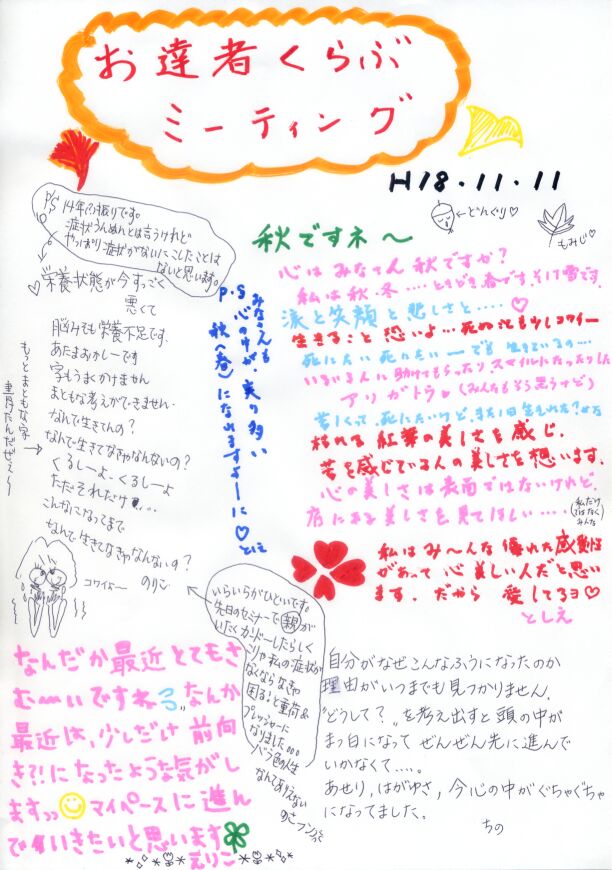 お達者くらぶ
ミーティング
H18.11.11
←どんぐり♡
もみじ♡
P/S 14年(?)振りです。
症状うんぬんとは言うけれど
やっぱり症状がないにこしたことは
ないと思います。
栄養状態が今すっごく
悪くて
脳みそも栄養不足です。
あたまおかしーです
字もうまくかけません
まともな考えがでてきません.
なんで生きてんの?
なんで生きてなきゃなんないの?
くるしーよ.くるしーよ
ただそれだけ....
こんなになってまで
なんで生きてなきゃなんないの?
のりこ
コワイよ〜
もっとまともな字
書けたんだぜぇ〜
P.S みなさんも
心の中が、実り多い
秋(春)に
なれますよーに♡
としえ
秋ですネ〜
心はみなさん秋ですか?
私は秋.冬....ときどき春です.そして雪です.
涙と笑顔と悲しさと....♡
生きること恐いよ...死ぬことも少しコワイー
死にたい死にたいーでも生きているの...
いろいろ人に助けてもらったりスマイルになったりした
アリガトラ♥(みんなもそう思うけど)
苦しくって.死にたいけど.また1日生まれた?から
枯れる紅葉の美しさを感じ.
苦を感じている人の美しさを想います.
心の美しさは表面ではないけれど.
店にある美しさを見てほしい....
(私だけ
ではなく
みんな)
私はみ〜んな優れた感性
があって心美しい人だと思い
ます.だから愛してるヨ♡
としえ
いらいらがひどいです。
先日のセミナーで親が
いたくカンドーしたらしく
こりゃ私の症状が
なくならなきゃ
困ると重荷&
プレッシャーに
なりました...
バラ色の人生
なんてありえない
なんだか最近とてもさ
む〜いですねぇ。なんか
最近は、少しだけ前向
き?!になったような気がし
ます♪♪マイペースに進ん
で行きたいと思います
えりこ
自分がなぜこんなふうになったのか
理由がいつまでも見つかりません.
"どうして?"を考え出すと頭の中が
まっ白になってぜんぜん先に進んで
いかなくて....。
あせり,はがゆさ,今心の中がぐちゃぐちゃ
になってました。
ちの